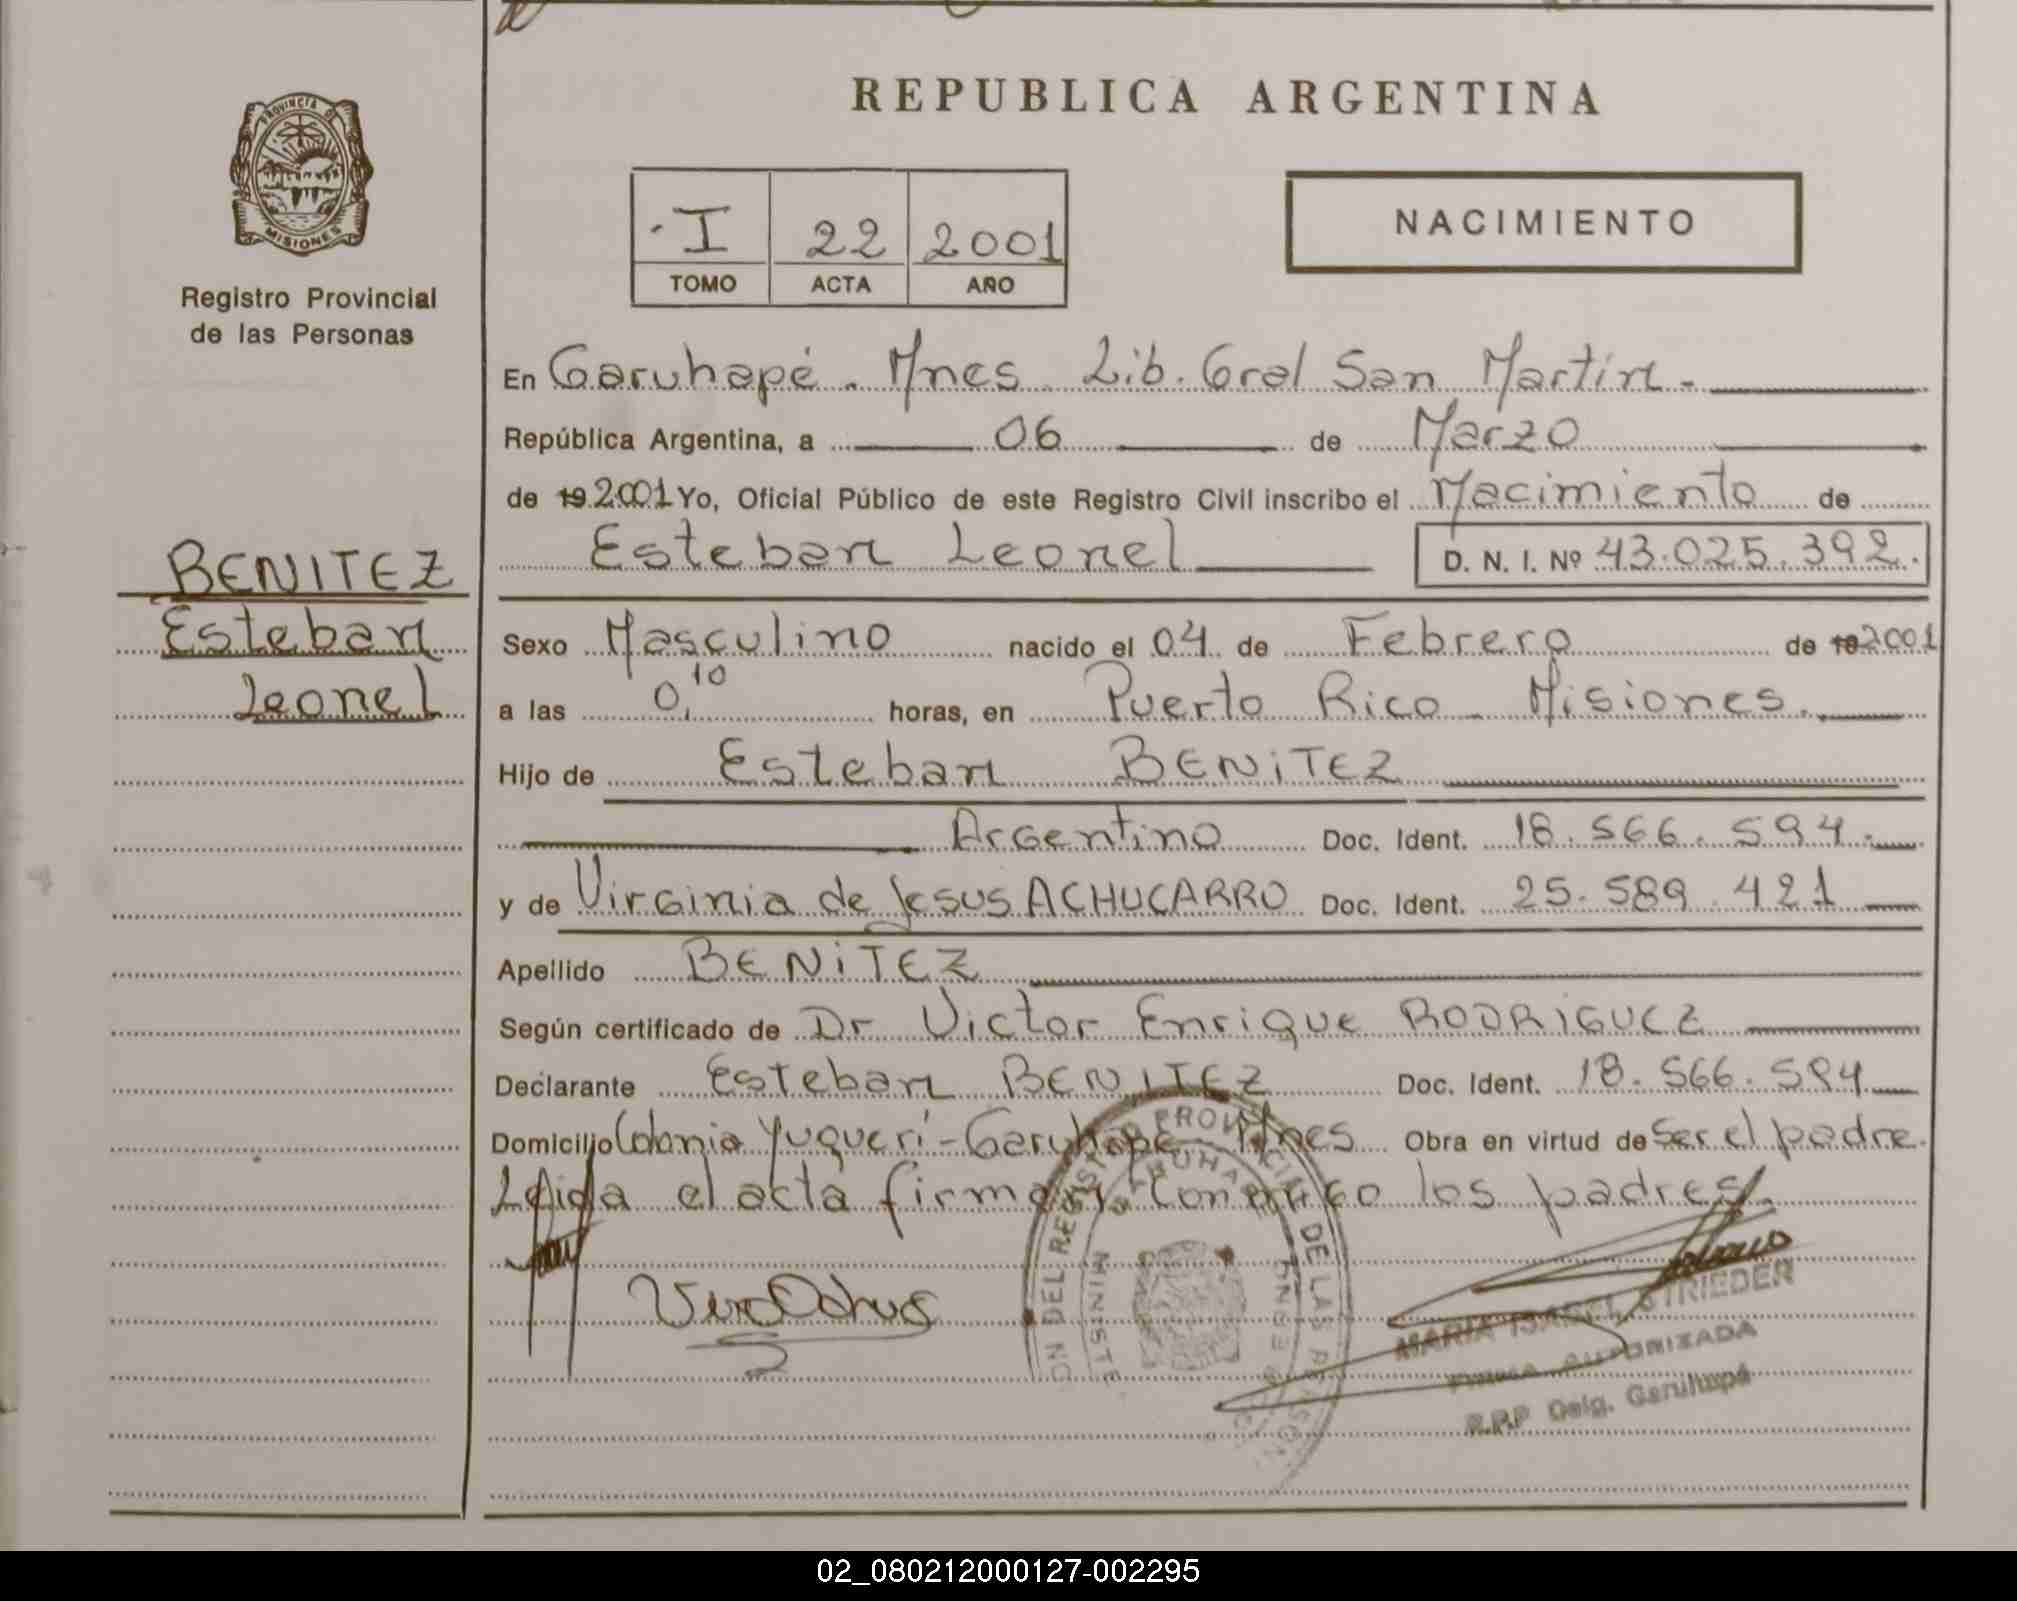 REPUBLICA ARGENTINA
PROVINCIA DE
MISIONES
Registro Provincial
de las Personas
I 22 2001
TOMO ACTA AÑO
NACIMIENTO
En Garuhapé - Mnes Lib. Gral San Martin -
República Argentina, a 06 de Marzo
de 19 2001 Yo, Oficial Público de este Registro Civil inscribo el Nacimiento de
Esteban Leonel D. N. I. Nº 43.025.392.
BENITEZ
Esteban
Leonel
Sexo Masculino nacido el 04 de Febrero de 19 2001
a las 0,10 horas, en Puerto Rico - Misiones.
Hijo de Esteban BENITEZ
Argentino Doc. Ident. 18.566.594.
y de Virginia de Jesus ACHUCARRO Doc. Ident. 25.589.421
Apellido BENITEZ
Según certificado de Dr Victor Enrique RODRIGUEZ
Declarante Esteban BENITEZ Doc. Ident. 18.566.594
Domicilio Colonia Yuqueri - Garuhape Mnes Obra en virtud de Ser el padre.
Leida el acta firman conmigo los padres.
DEL REGISTRO PROVINCIAL DE LAS PERSONAS
MARIA ISABEL STRIEDER
FIRMA AUTORIZADA
R.P.P Delg. Garuhapé
02_080212000127-002295